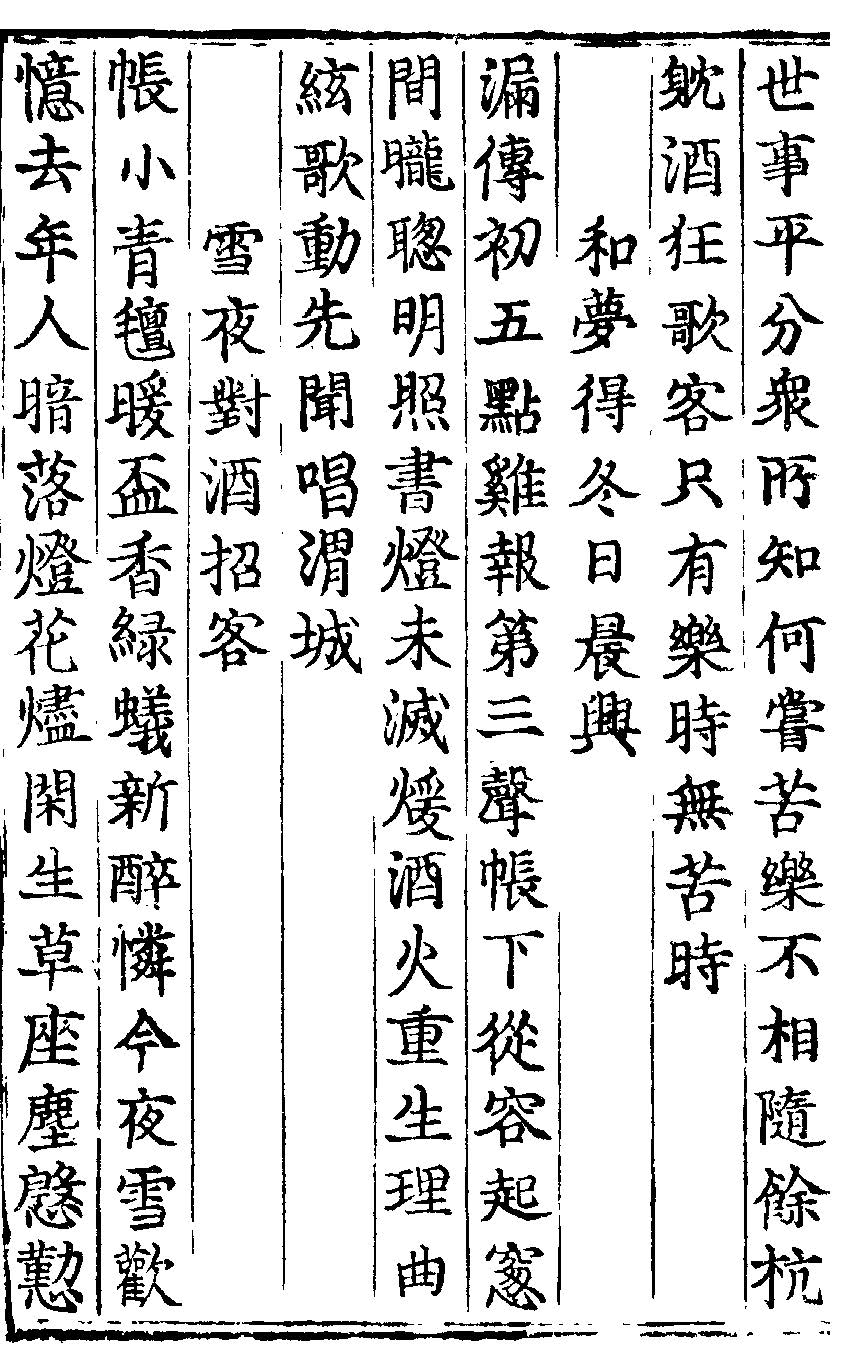 世事平分衆所知何嘗苦樂不相隨餘杭
躭酒狂歌客只有樂時無苦時
和夢得冬日晨興
漏傳初五點雞報第三聲帳下從容起窓
間曨聦明照書燈未滅煖酒火重生理曲
絃歌動先聞唱渭城
雪夜對酒招客
帳小青氊暖盃香緑蟻新醉憐今夜雪歡
憶去年人暗落燈花燼閑生草座塵慇懃